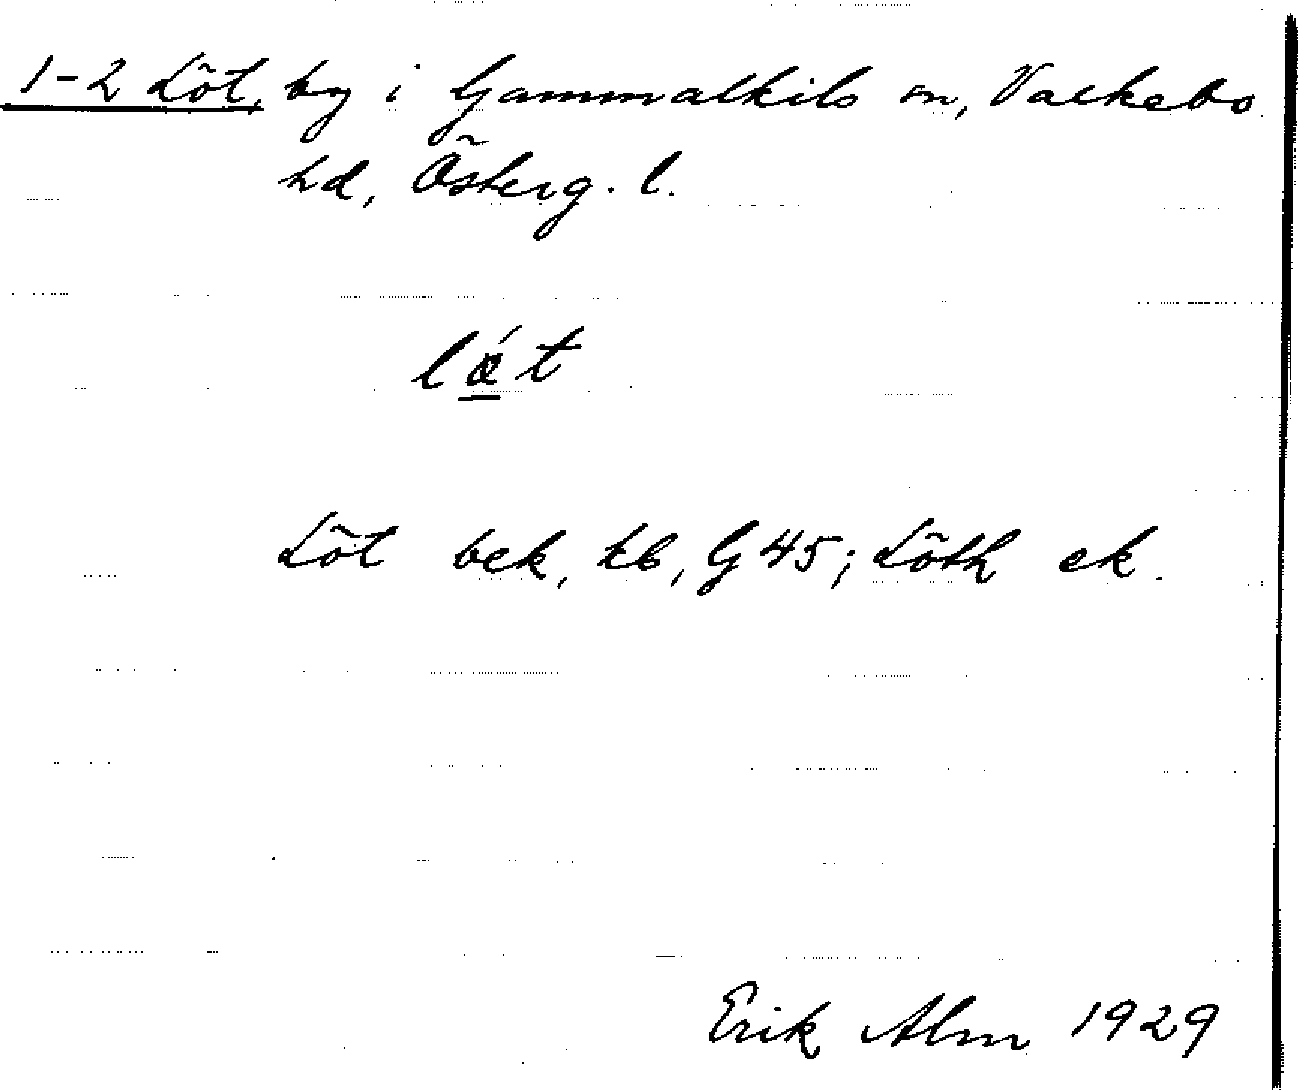 1-2 Löt, by i Gammalkils sn, Valkebo
hd, Österg. l.
Löt bek, tb, G 45; Löth ek.
Erik Alm 1929